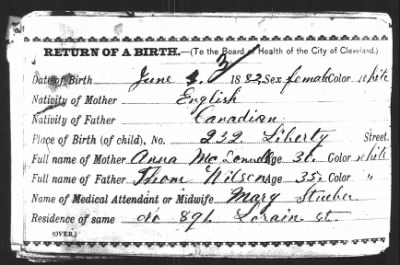 3
RETURN OF A BIRTH.—(To the Board of Health of the City of Cleveland.)
Date of Birth June 3. 1882. Sex female Color white
Nativity of Mother English
Nativity of Father Canadian
Place of Birth (of child), No. 232 Liberty Street.
Full name of Mother Anna Age 36. Color white
Full name of Father Thom Wilson Age 35. Color "
Name of Medical Attendant or Midwife Mary Stueber
Residence of same No 891. Lorain st.
(OVER.)